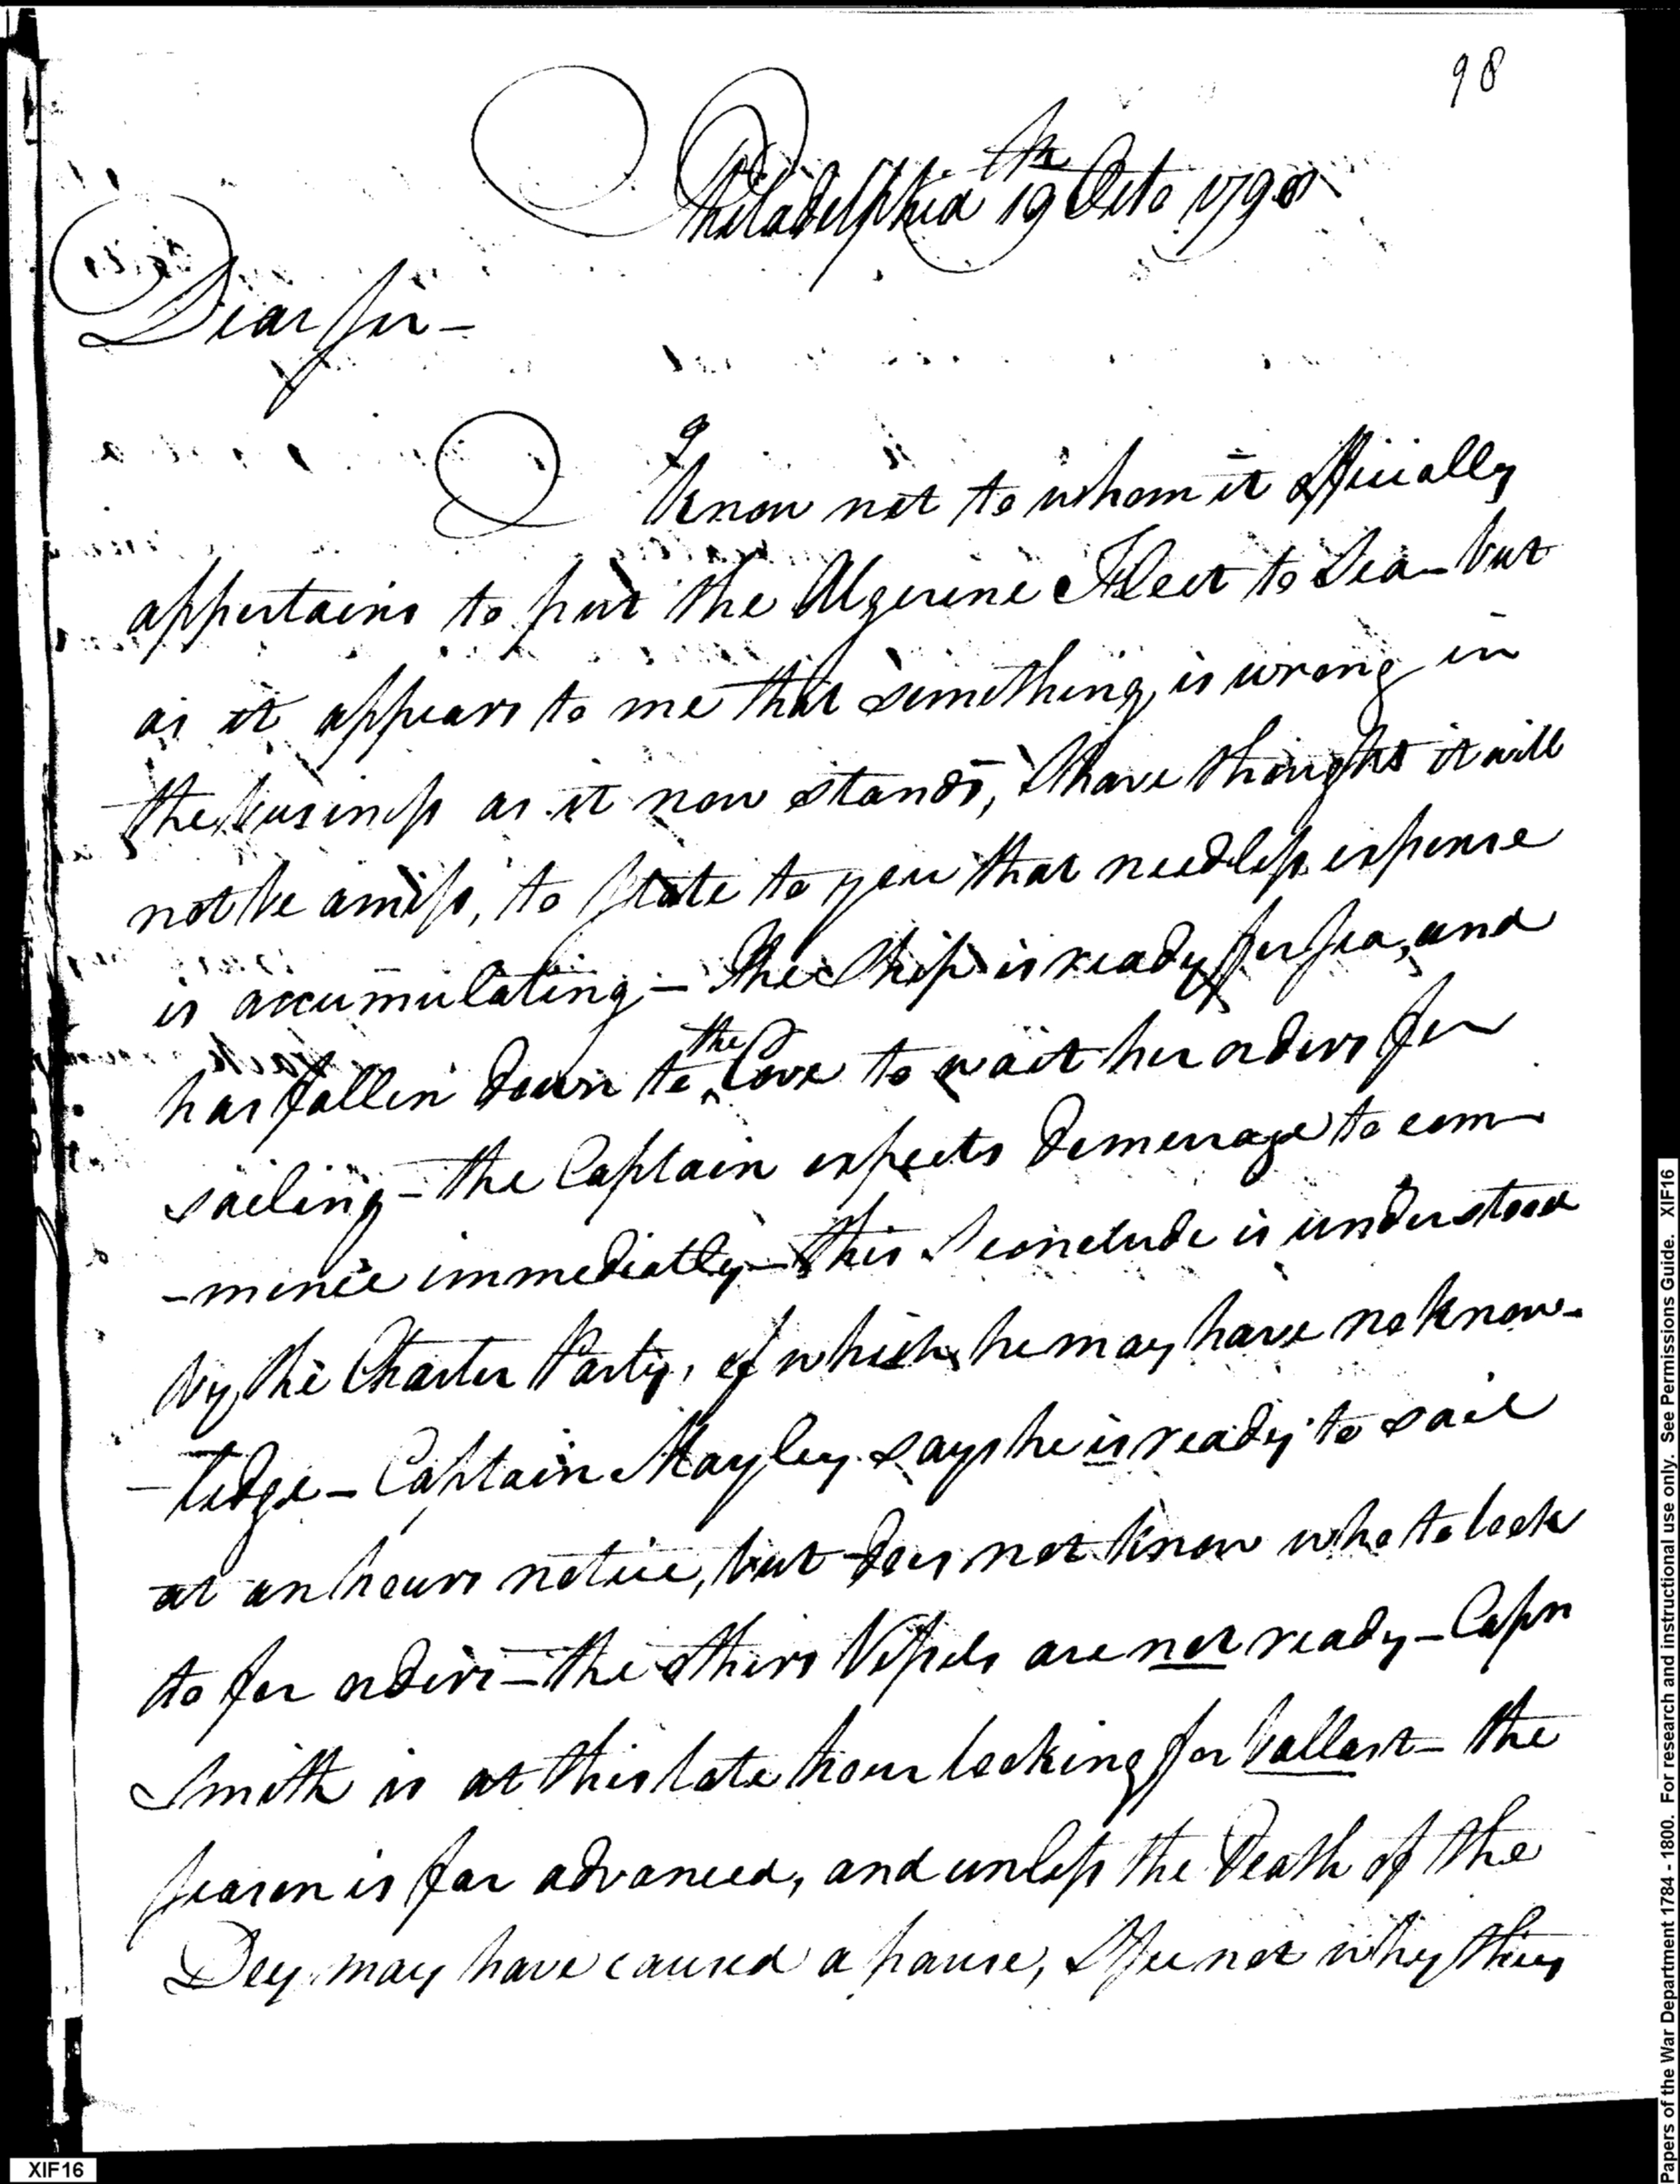 98
Philadelphia 19th Octo 1798
Dear Sir —
I know not to whom it officially
appertains to put the Algerine Fleet to Sea — but
as it appears to me that something is wrong in
the business as it now stands, I have thought it will
not be amiss, to state to you that needless expense
is accumulating — The Ship is ready for sea, and
has fallen down to the Cove to wait her orders for
sailing — the Captain expects Demerrage to com
-mence immediatly — this I conclude is understood
by the Charter Party, of which he may have no know-
-ledge — Captain Mayley says he is ready to sail
at an hours notice, but does not know who to look
to for orders — the others Vessels are not ready — Capn
Smith is at this late hour looking for ballast — the
season is far advanced, and unless the Death of the
Dey may have caused a pause, I see not why they
XIF16
Papers of the War Department 1784 - 1800. For research and instructional use only. See Permissions Guide. XIF16